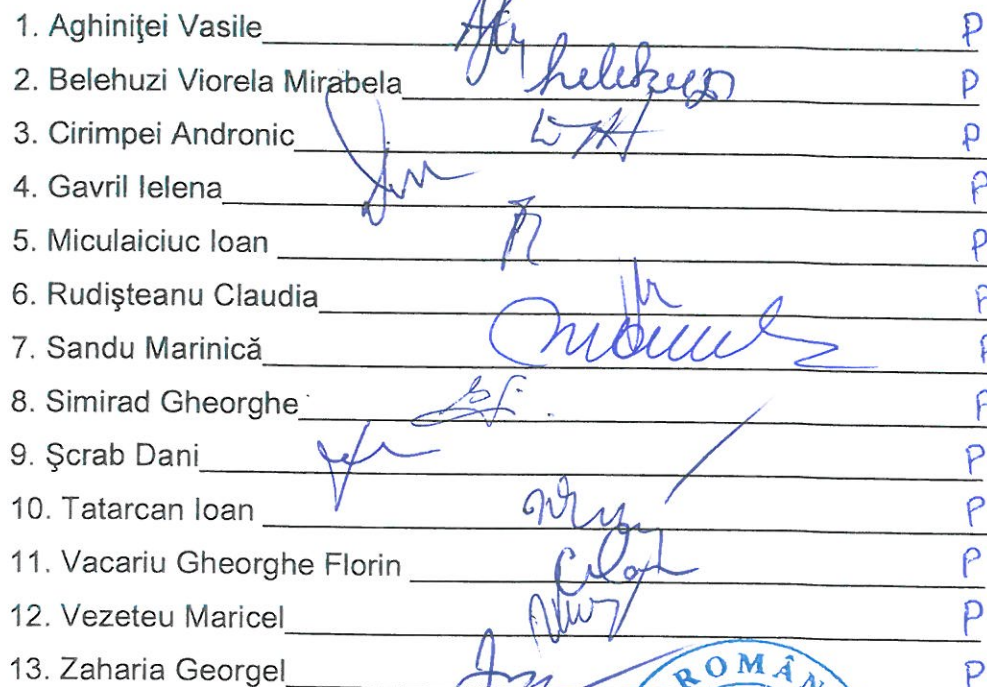 1. Aghiniţei Vasile P
2. Belehuzi Viorela Mirabela P
3. Cirimpei Andronic P
4. Gavril Ielena P
5. Miculaiciuc Ioan P
6. Rudişteanu Claudia P
7. Sandu Marinică P
8. Simirad Gheorghe P
9. Şcrab Dani P
10. Tatarcan Ioan P
11. Vacariu Gheorghe Florin P
12. Vezeteu Maricel P
13. Zaharia Georgel P
ROMÂN